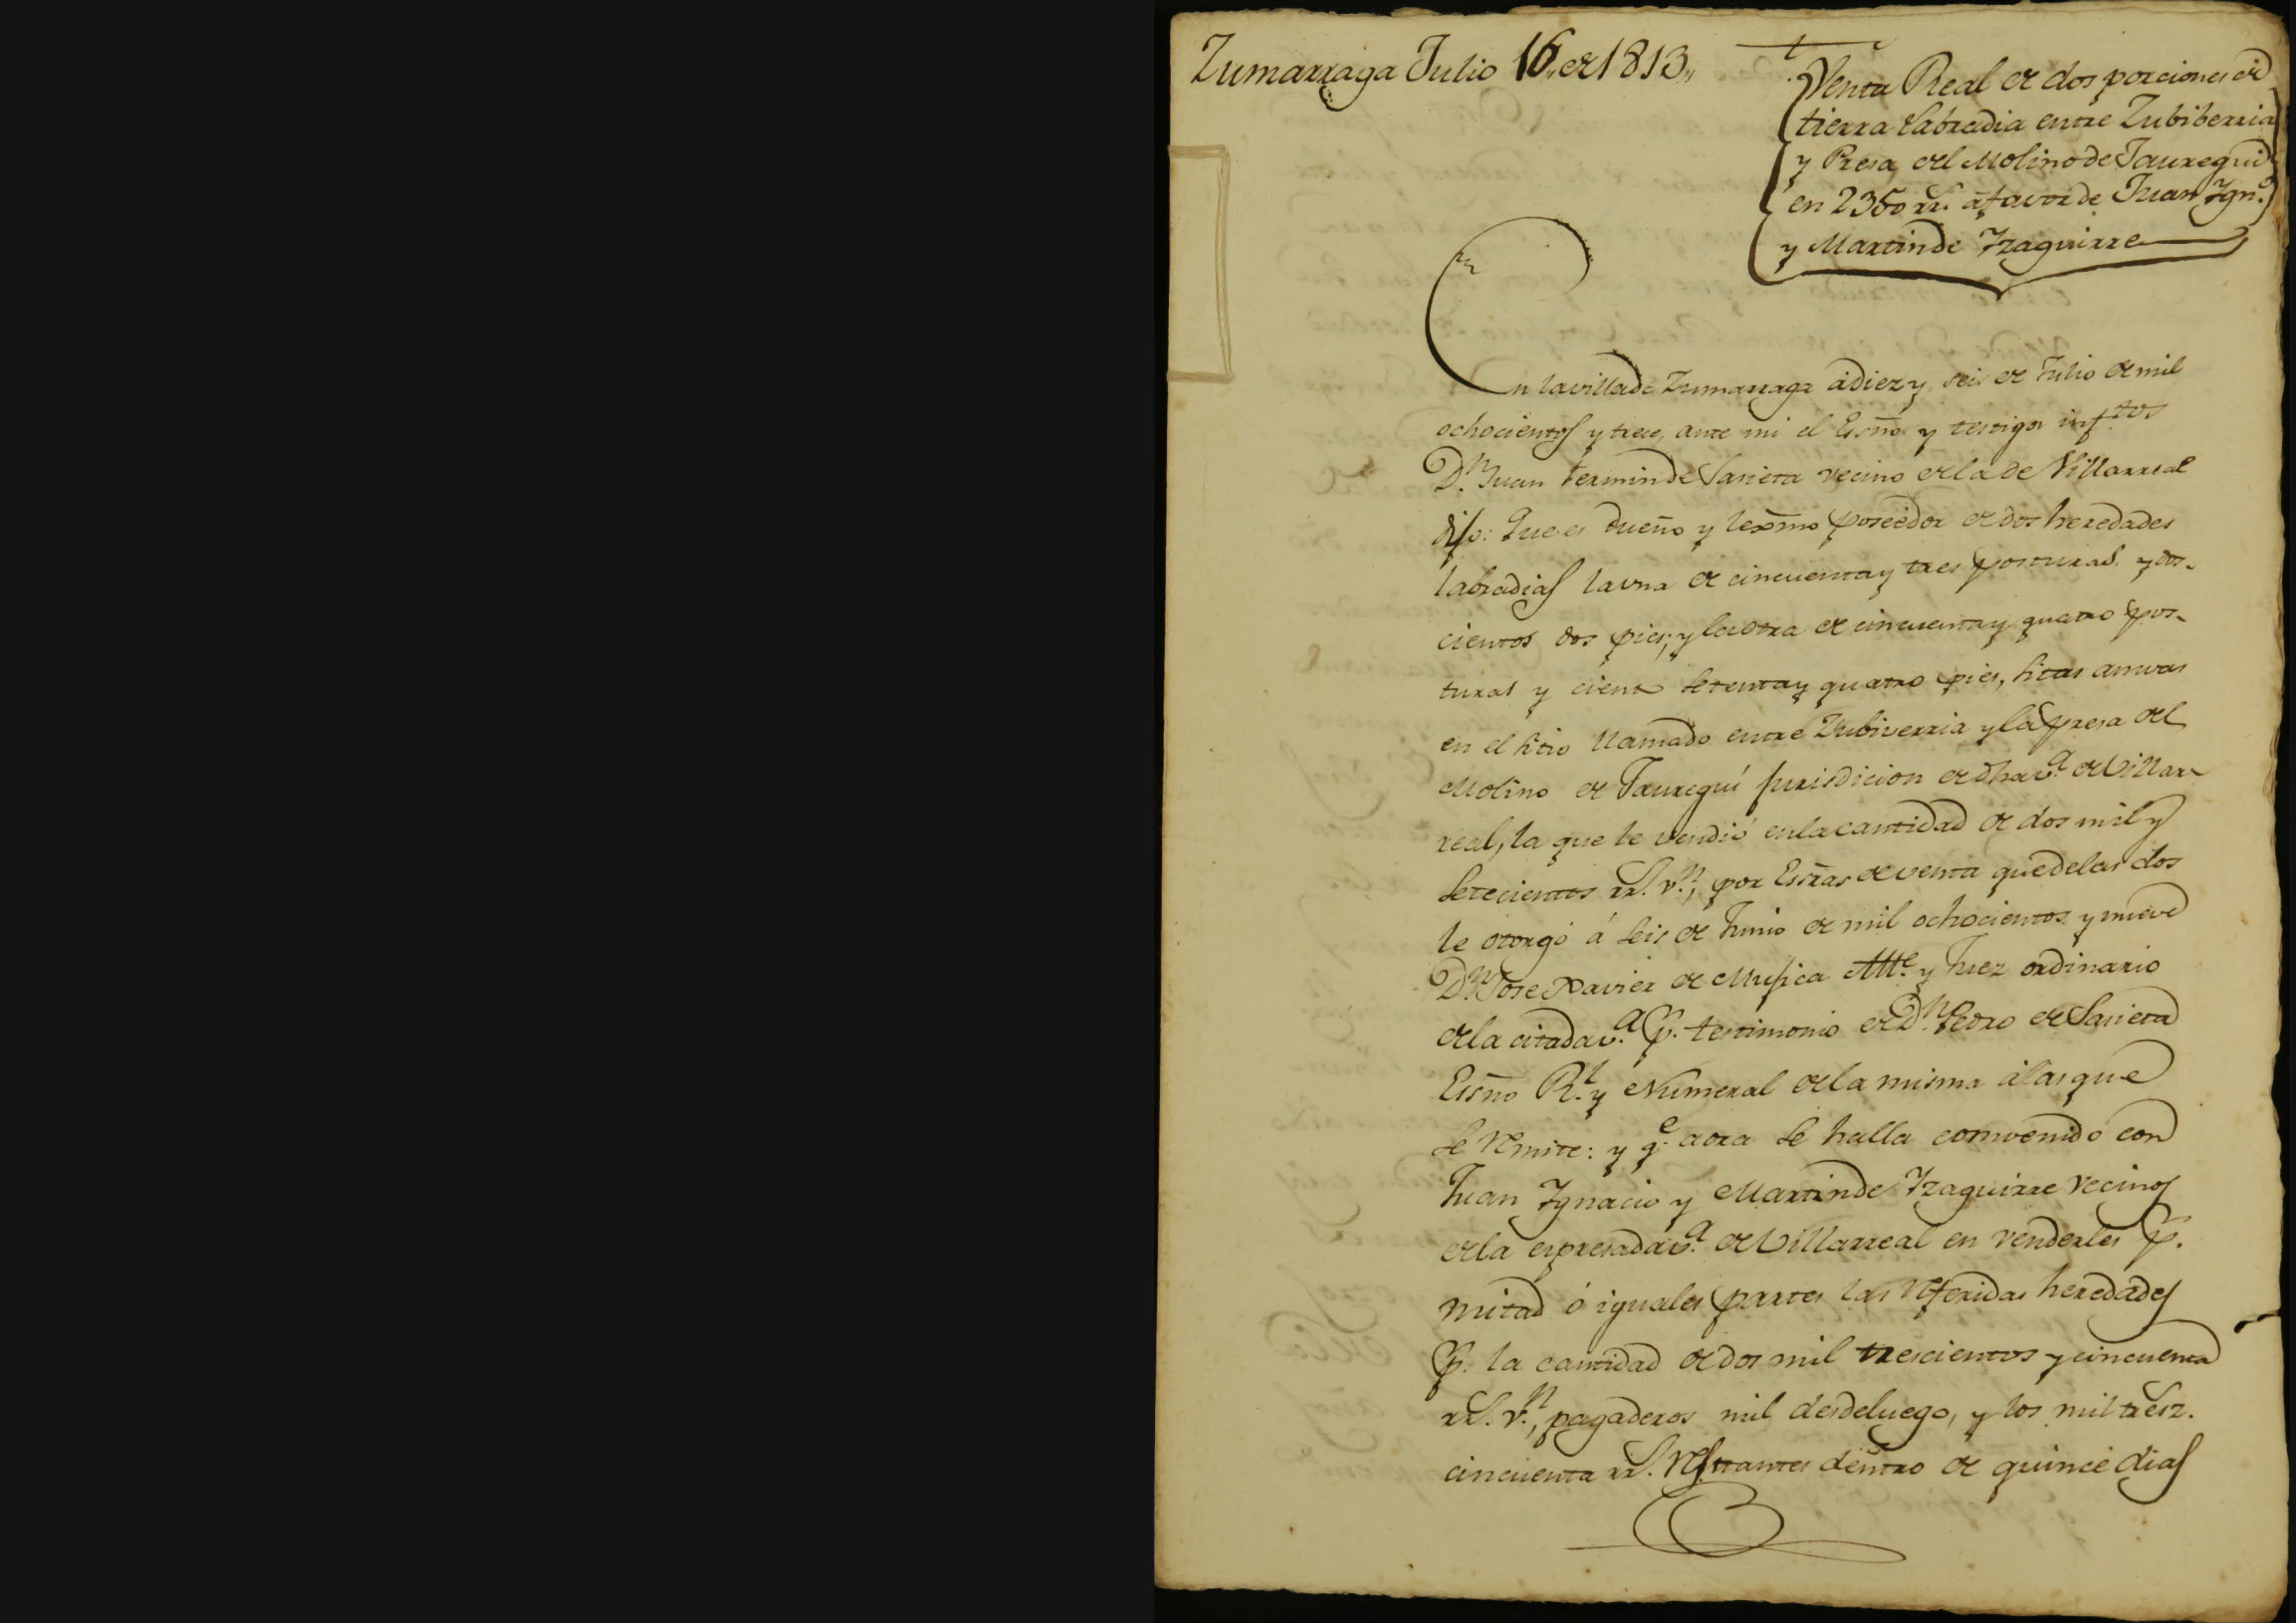 Zumarraga Julio 16,, de 1813,,
Venta Real de dos porciones de
tierra labradia entre Zubiberria
y Presa del Molino de Jauregui
en 2350 rr.s á favor de Juan Ygn.o
y Martin de Yzaguirre
En la villa de Zumarraga á diez y seis de Julio de mil
ochocientos y trece, ante mi el Esño y testigos inf.tos
D.n Juan Fermin de Sarieta vecino de la de Villarreal
dijo: Que es dueño y lexmo poseédor de dos heredades
labradias la vna de cincuenta y tres posturas y dos-
cientos dos pies; y la otra de cincuenta y quatro pos-
turas y ciento setenta y quatro pies, sitas amvas
en el sitio llamado entre Zubiverria y la presa del
Molino de Jauregui jurisdicion de dha v.a de Villar-
real, la que le vendió en la cantidad de dos mil y
setecientos rr.s v.n, por Esrãs de venta que de las dos
le otorgó á seis de Junio de mil ochocientos y nueve
D.n Jose Xavier de Mugica All.e y Juez ordinario
de la citada v.a p. testimonio de D.n Pedro de Sarieta
Esño R.l y Numeral de la misma á las que
se remite: y q.e aora se halla convenido con
Juan Ygnacio y Martin de Yzaguirre vecinos
de la espresada v.a de Villarreal en venderles p.
mitad ó iguales partes las referidas heredades
p. la cantidad de dos mil trescientos y cincuenta
rr.s v.n, pagaderos mil desdeluego, y los mil tresz.
cincuenta rr.s restantes dentro de quince dias